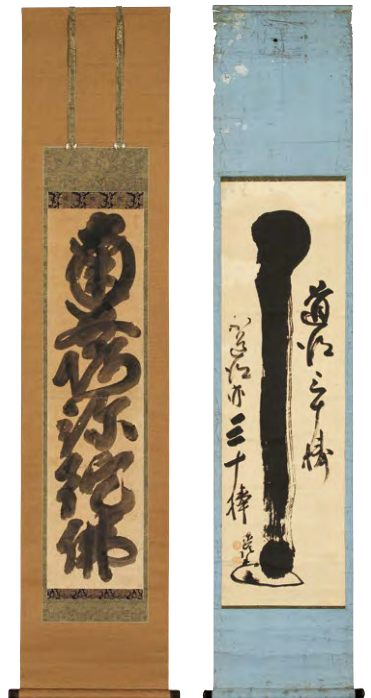 南無阿弥陀佛
道得三十棒
不道得亦三十棒